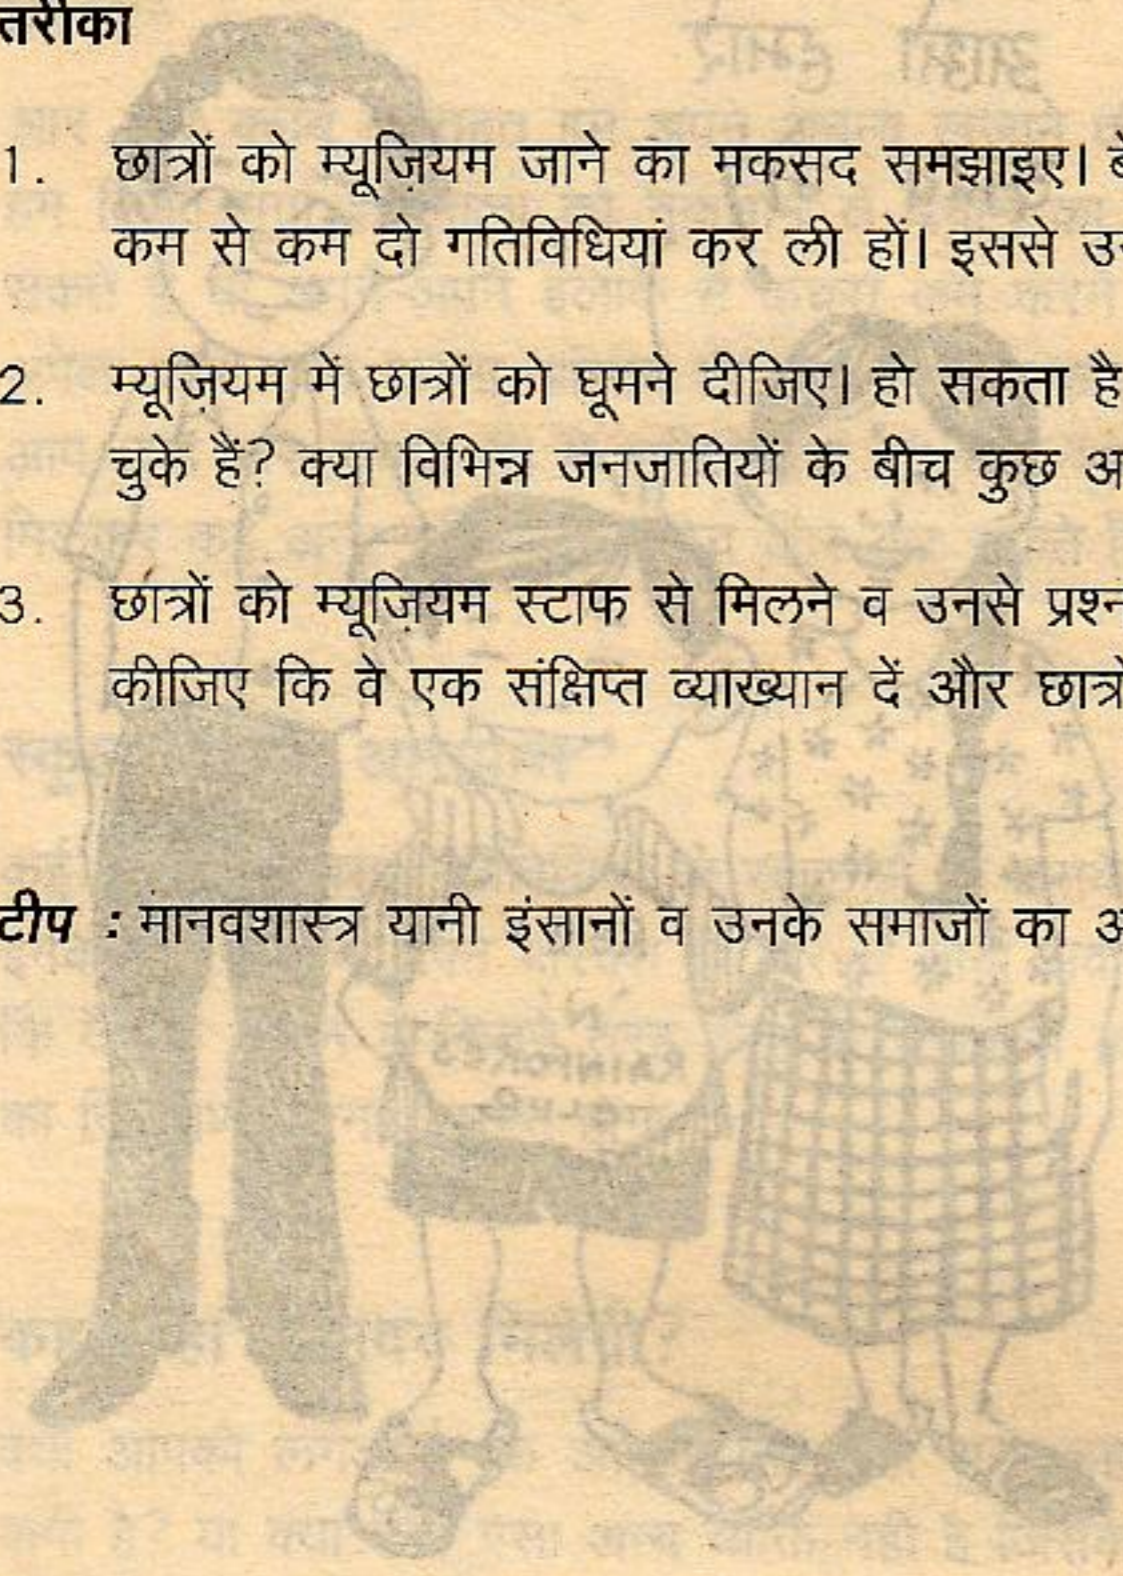 तरीका
1. छात्रों को म्यूज़ियम जाने का मकसद समझाइए।
कम से कम दो गतिविधियां कर ली हों। इससे
2. म्यूज़ियम में छात्रों को घूमने दीजिए। हो सकता है
चुके हैं? क्या विभिन्न जनजातियों के बीच कुछ
3. छात्रों को म्यूज़ियम स्टाफ से मिलने व उनसे प्रश्न
कीजिए कि वे एक संक्षिप्त व्याख्यान दें और छात्रों
टीप : मानवशास्त्र यानी इंसानों व उनके समाजों का